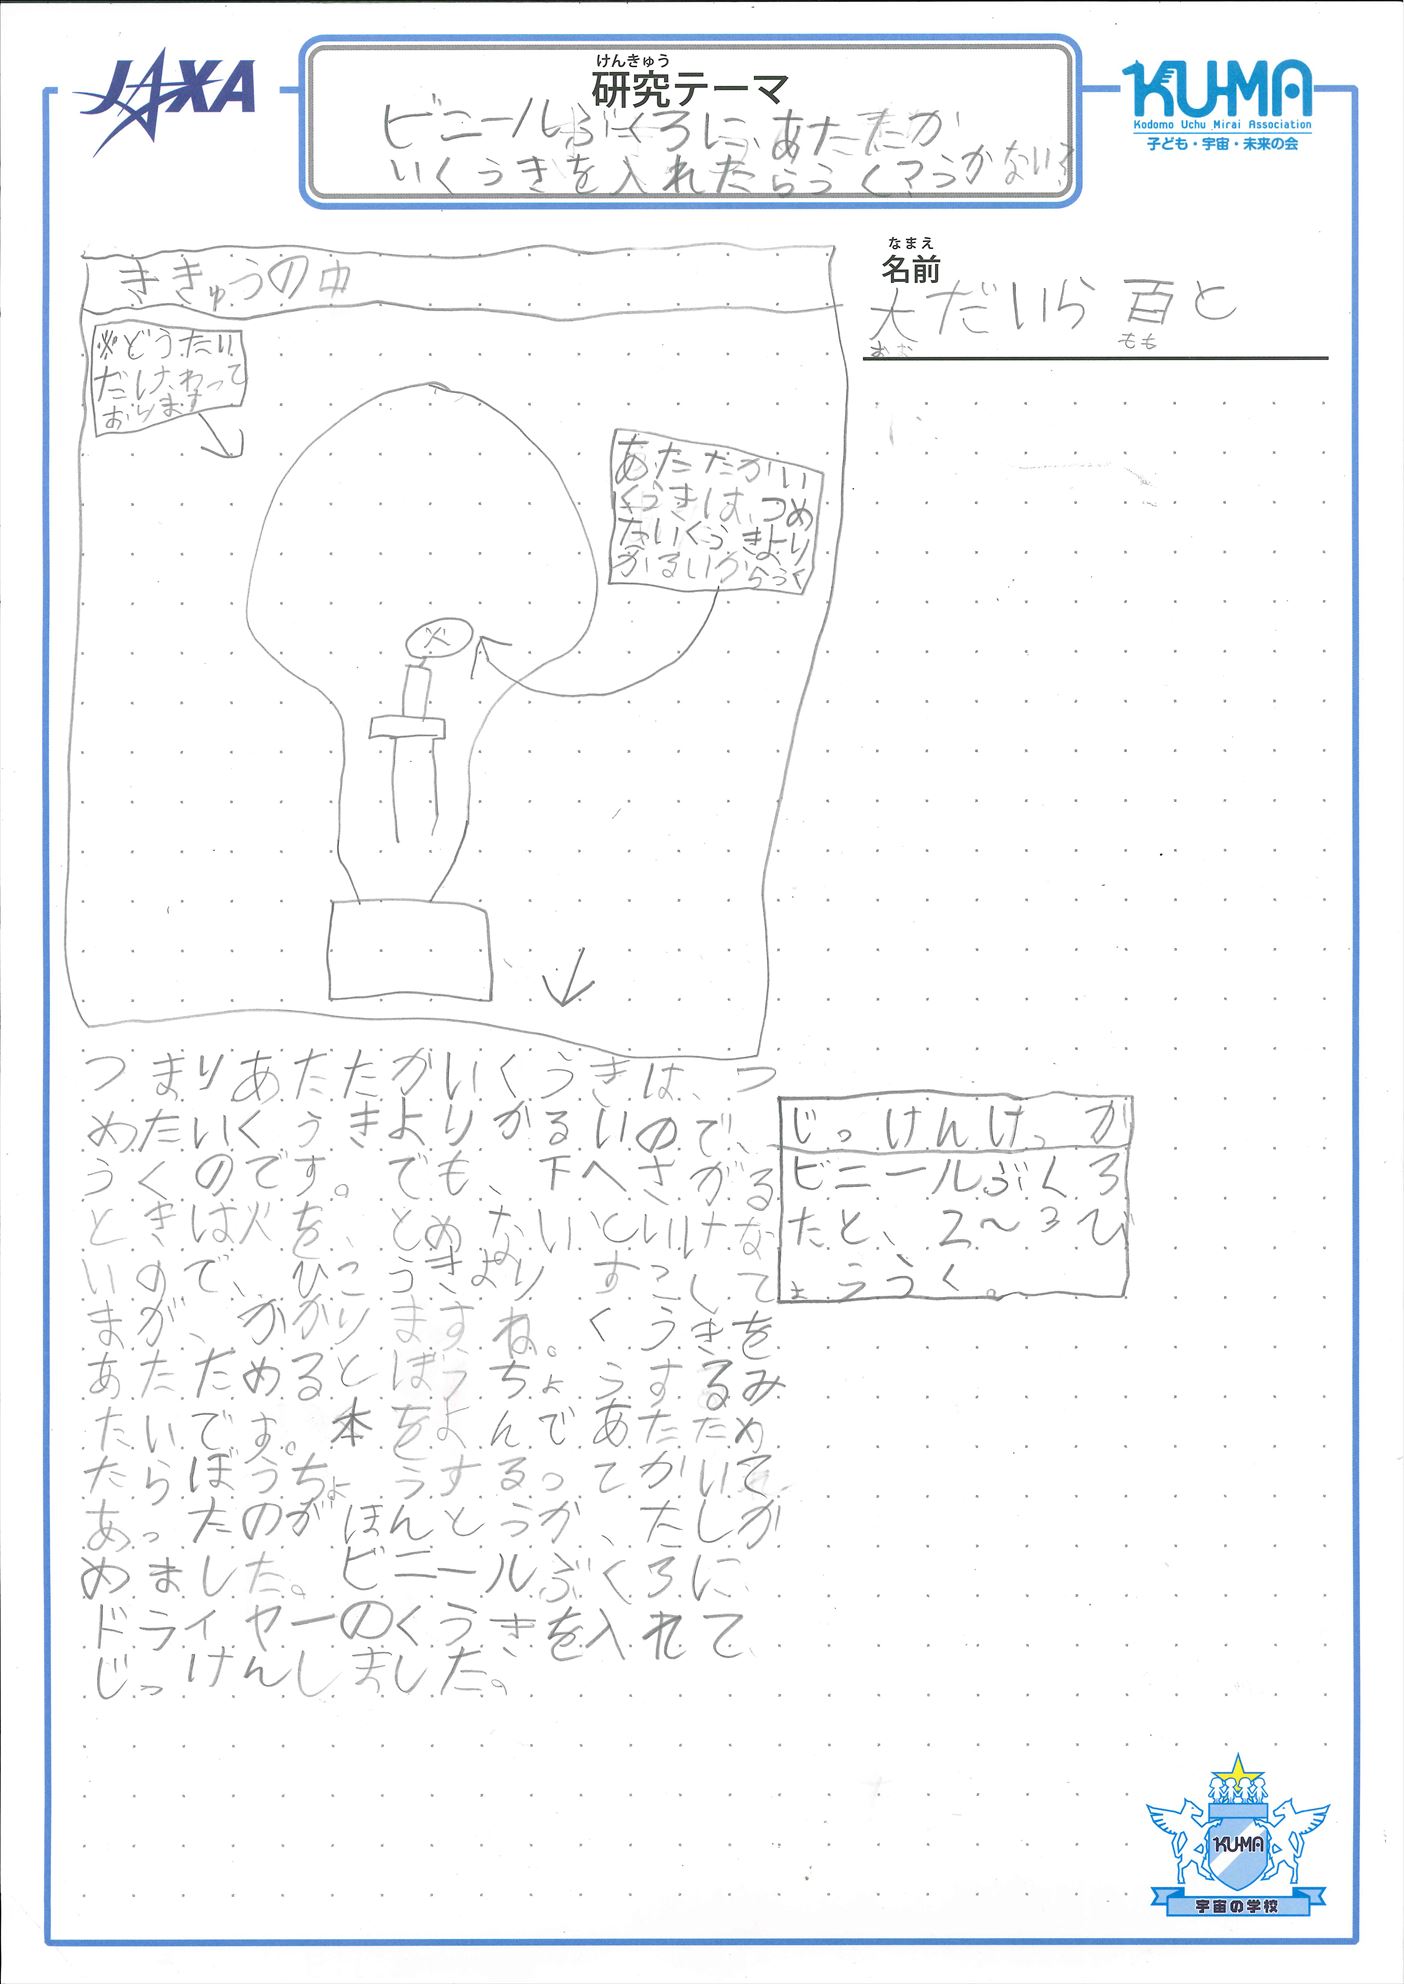 JAXA
けんきゅう
研究テーマ
ビニールぶくろに、あたたか
いくうきを入れたらうく?うかない?
KU-MA
Kodomo Uchu Mirai Association
子ども・宇宙・未来の会
なまえ
名前
大だいら 百と
おお もも
ききゅうの中
※どうたい
だけ、わって
おります
あたたかい
くうきは、つめ
たいくうきより
かるいからうく
火
つまりあたたかいくうきは、つ
めたいくうきよりかるいので、
うくのです。でも、下へさがる
ときは火を、とめないといけな
いので、ひこうきよりすこして
まが、かかりますね。くうきを
あたためるとぼうちょうするみ
たいです。本をよんであたため
たらぼうちょうするってかいて
あったのがほんとうか、たしか
めました。ビニールぶくろに
ドライヤーのくうきを入れて
じっけんしました。
じっけんけっか
ビニールぶくろ
だと、2〜3び
ょううく。
KU-MA
宇宙の学校